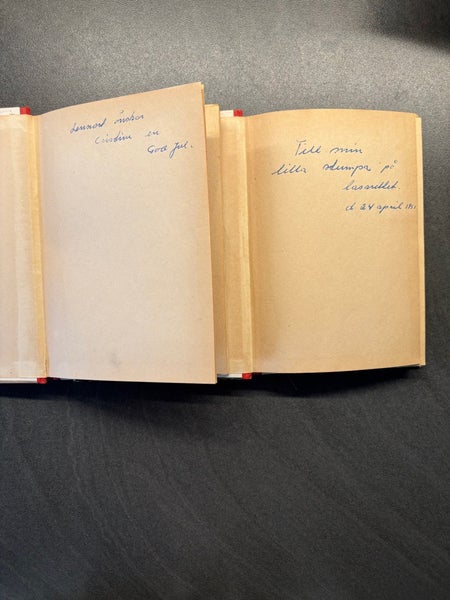 Lennart önskar
Cristine en
God Jul.
Till min
lilla stumpa på
lasarettet.
d 24 april